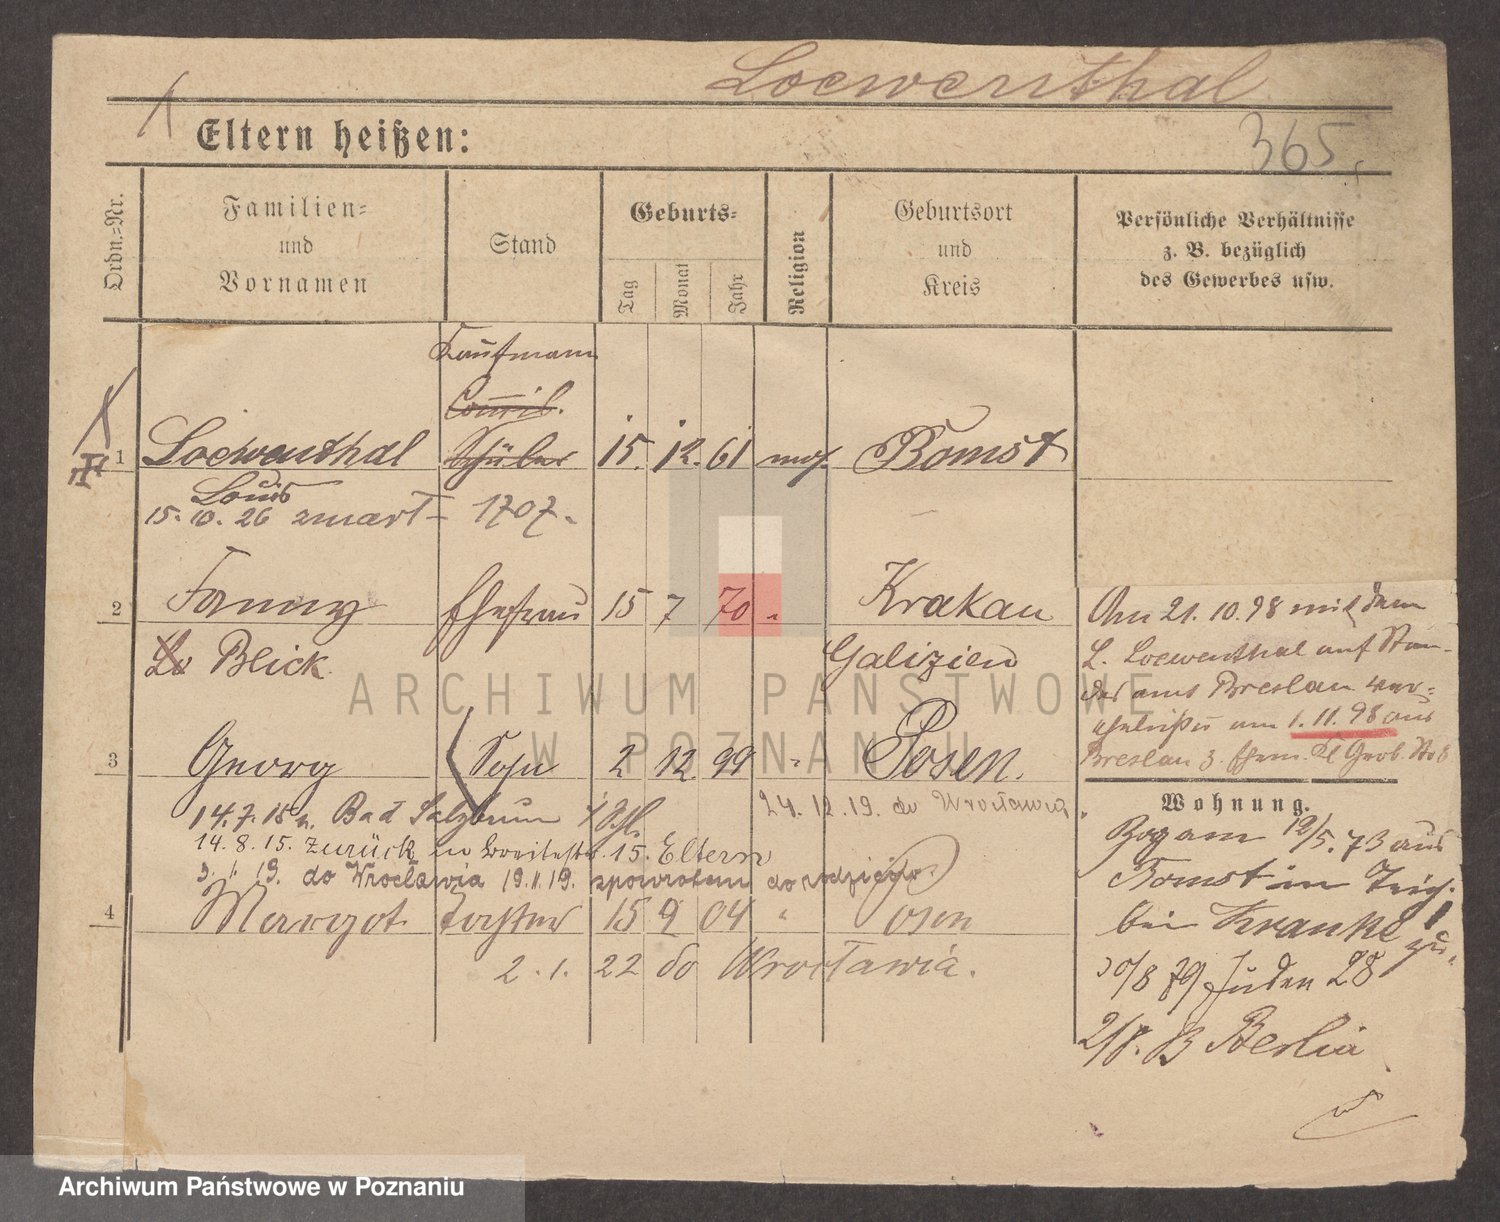 Loewenthal
Eltern heißen:
365.
Ordn.-Nr.
Familien- und Vornamen
Stand
Geburts-
Tag
Monat
Jahr
Religion
Geburtsort und Kreis
Persönliche Verhältnisse z. B. bezüglich des Gewerbes usw.
Kaufmann
Commis.
1 Loewenthal Schüler 15. 12. 61 mos. Bomst
Louis
15. 10. 26 zmarł - 1707.
2 Fanny Ehefrau 15 7 70 " Krakau
Lo Blick Galizien
Am 21. 10. 98 mit dem
L. Loewenthal auf Stan-
desamt Breslau ver-
am 1. 11. 98 aus
Breslau 3.
3 Georg Sohn 2 12 99 " Posen.
14. 7. 15 n. Bad Salzbrunn
24. 12. 19. do Wrocławia
14. 8. 15. zurück in Breitestr. 15. Eltern
3. 1. 19. do Wrocławia 19. 11. 19. spowrotem do rodziców.
4 Margot Tochter 15 9 04 " Posen
2. 1. 22 do Wrocławia.
Wohnung.
Zog am 12/5. 73 aus
Bomst in
bei Krause zu.
30/8 79 Juden 28
2/8. 83 Berlin
ARCHIWUM PAŃSTWOWE
W POZNANIU
Archiwum Państwowe w Poznaniu